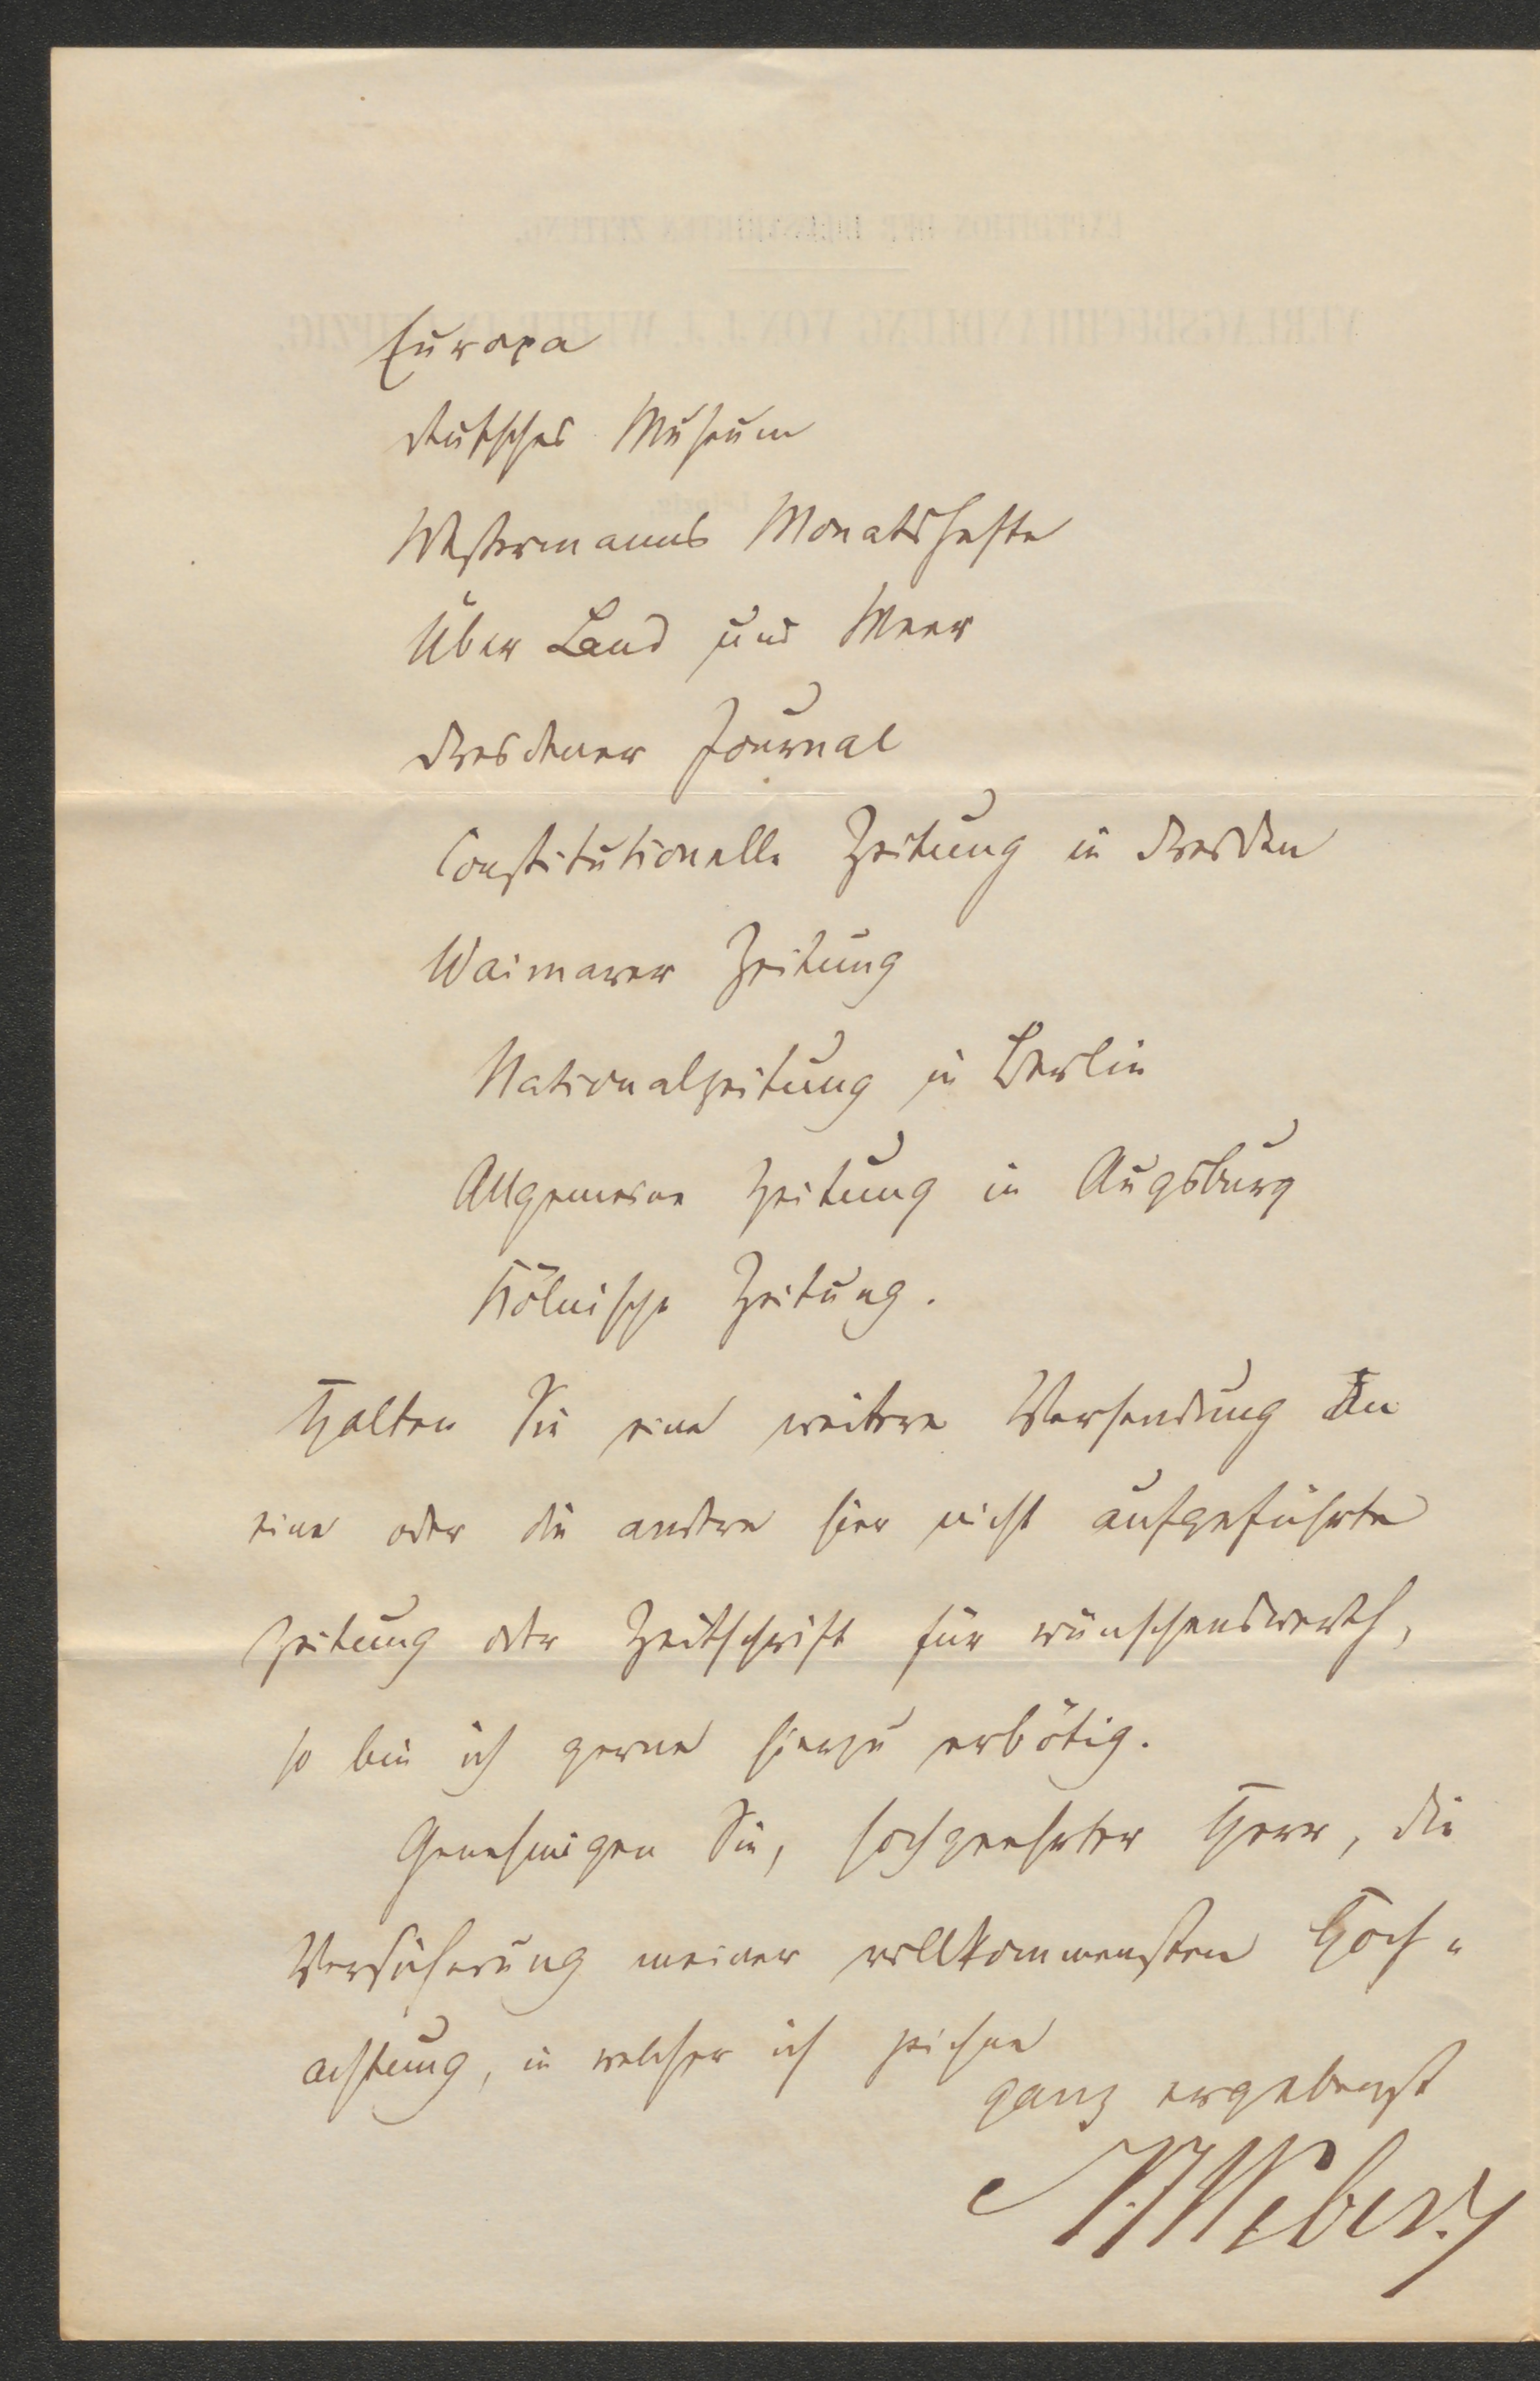 Europa
deutsches Museum
Westermanns Monatshefte
Über Land und Meer
Dresdener Journal
Constitutionelle Zeitung in Dresden
Weimarer Zeitung
Nationalzeitung in Berlin
Allgemeine Zeitung in Augsburg
Kölnische Zeitung.
Halten Sie eine weitere Versendung an
eine oder die andere hier nicht aufgeführte
Zeitung oder Zeitschrift für wünschenswerth,
so bin ich gerne hierzu erbötig.
Genehmigen Sie, hochgeehrter Herr, die
Versicherung meiner vollkommensten Hoch-
achtung, in welcher ich zeichne
ganz ergebenst
J.J. Weber.